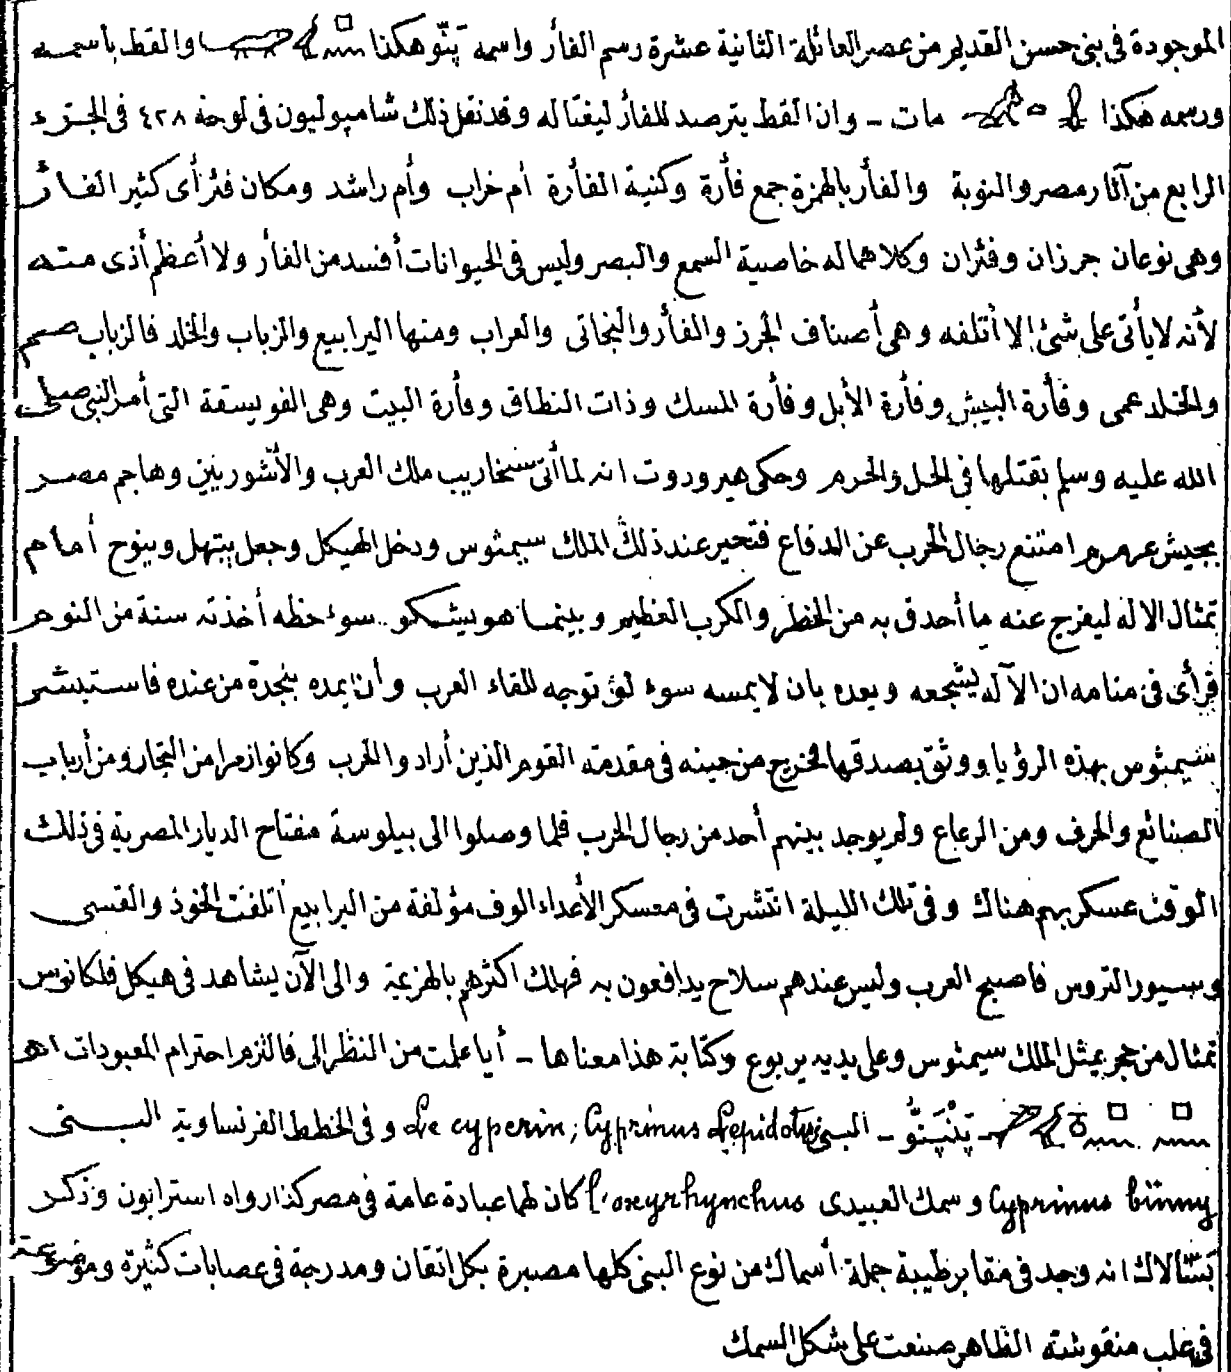 الموجودة فى بنى حسن القديم من عصر العائلة الثانية عشرة رسم الفأر واسمه پَنّو هكذا والقط باسمه
ورسمه هكذا مات - وان القط يترصد للفأر ليغتاله وقد نقل ذلك شامپوليون فى لوحة ٤٢٨ فى الجزء
الرابع من آثار مصر والنوبة والفأر بالهمزة جمع فأرة وكنية الفأرة أم خراب وأم راشد ومكان فئر أى كثير الفأر
وهى نوعان جرزان وفئران وكلاهما له خاصية السمع والبصر وليس فى الحيوانات أفسد من الفأر ولا أعظم أذى منه
لأنه لا يأتى على شئ إلا أتلفه وهى أصناف الجرز والفأر والنجاتى والعراب ومنها اليرابيع والزباب والخلد فالزباب صم
والخلد عمى وفأرة البيش وفأرة الأبل وفأرة المسك وذات النطاق وفأرة البيت وهى الفويسقة التى أمر النبى صلى
الله عليه وسلم بقتلها فى الحل والحرم وحكى هيرودوت انه لما أتى سنخاريب ملك العرب والأشوريين وهاجم مصر
بجيش عرمرم امتنع رجال الحرب عن الدفاع فتحير عند ذلك الملك سيمثوس ودخل الهيكل وجعل يبتهل وينوح أمام
تمثال الاله ليفرج عنه ما أحدق به من الخطر والكرب العظيم وبينما هو يشكو سوء حظه أخذته سنة من النوم
فرأى فى منامه ان الآله يشجعه ويعده بان لا يمسه سوء لو توجه للقاء العرب وأن يمده بنجدة من عنده فاستبشر
سيمثوس بهذه الرؤيا ووثق بصدقها فخرج من حينه فى مقدمة القوم الذين أرادوا الحرب وكانوا زمرا من التجار ومن أرباب
الصنائع والحرف ومن الرعاع ولم يوجد بينهم أحد من رجال الحرب فلما وصلوا الى بيلوسة مفتاح الديار المصرية فى ذلك
الوقت عسكر بهم هناك وفى تلك الليلة انتشرت فى معسكر الأعداء الوف مؤلفة من اليرابيع أتلفت الخوذ والقسى
وسيور التروس فاصبح العرب وليس عندهم سلاح يدافعون به فهلك اكثرهم بالهزيمة والى الآن يشاهد فى هيكل فلكانوس
تمثال من حجر يمثل الملك سيمثوس وعلى يديه يربوع وكتابة هذا معناها - أيا علمت من النظر الى فالتزم احترام المعبودات اهـ
- پَنْپَنُّو - البنى Le cyperin; Cyprinus Lepidotus وفى الخطط الفرنساوية البنى
Cyprinus binny وسمك العبيدى l'oxyrhynchus كان لهما عبادة عامة فى مصر كذا رواه استرابون وذكر
بَسّالاك انه وجد فى مقابر طيبة جملة أسماك من نوع البنى كلها مصبرة بكل اتقان ومدرجة فى عصابات كثيرة وموضوعة
فى علب منقوشة الظاهر صنعت على شكل السمك